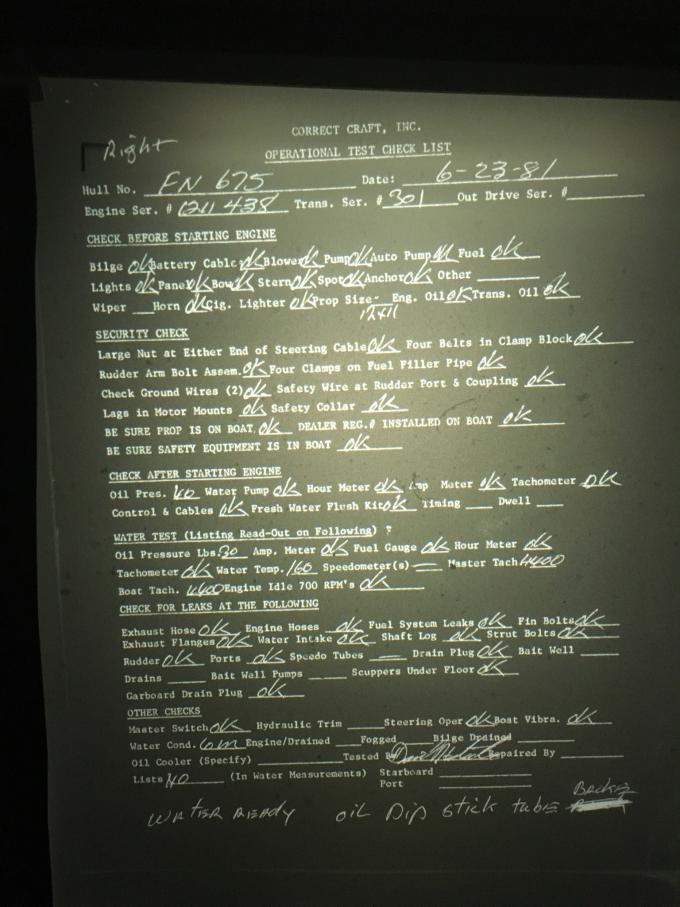 CORRECT CRAFT, INC.
Right
OPERATIONAL TEST CHECK LIST
Hull No. FN 675 Date: 6-23-81
Engine Ser. # 1211 438 Trans. Ser. # 301 Out Drive Ser. #
CHECK BEFORE STARTING ENGINE
Bilge ok Battery Cables ok Blower ok Pump ok Auto Pump ok Fuel ok
Lights ok Panel ok Bow ok Stern ok Spot ok Anchor ok Other
Wiper Horn ok Cig. Lighter ok Prop Size- Eng. Oil ok Trans. Oil ok
12x11
SECURITY CHECK
Large Nut at Either End of Steering Cable ok Four Belts in Clamp Block ok
Rudder Arm Bolt Assem. ok Four Clamps on Fuel Filler Pipe ok
Check Ground Wires (2) ok Safety Wire at Rudder Port & Coupling ok
Lags in Motor Mounts ok Safety Collar ok
BE SURE PROP IS ON BOAT. ok DEALER REG.# INSTALLED ON BOAT ok
BE SURE SAFETY EQUIPMENT IS IN BOAT ok
CHECK AFTER STARTING ENGINE
Oil Pres. 40 Water Pump ok Hour Meter ok Amp Meter ok Tachometer ok
Control & Cables ok Fresh Water Flush Kit ok Timing Dwell
WATER TEST (Listing Read-Out on Following) ?
Oil Pressure Lbs. 50 Amp. Meter ok Fuel Gauge ok Hour Meter ok
Tachometer ok Water Temp. 160 Speedometer(s) — Master Tach 4400
Boat Tach. 4400 Engine Idle 700 RPM's ok
CHECK FOR LEAKS AT THE FOLLOWING
Exhaust Hose ok Engine Hoses ok Fuel System Leaks ok Fin Bolts ok
Exhaust Flanges ok Water Intake ok Shaft Log ok Strut Bolts ok
Rudder ok Ports ok Speedo Tubes — Drain Plug ok Bait Well
Drains Bait Well Pumps Scuppers Under Floor ok
Garboard Drain Plug ok
OTHER CHECKS
Master Switch ok Hydraulic Trim Steering Oper ok Boat Vibra. ok
Water Cond. Engine/Drained Fogged Bilge Drained
Oil Cooler (Specify) Tested By Repaired By
Lists NO (In Water Measurements) Starboard
Port
WATER READY oil Dip stick tube